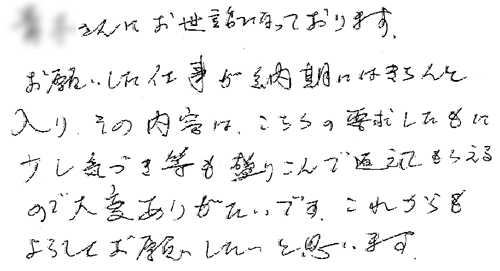 さんにお世話になっております。
お願いした仕事が納期にはきちんと
入り、その内容は、こちらの要求したもに
少し気づき等も盛りこんで直してもらえる
ので大変ありがたいです。これからも
よろしくお願いしたいと思います。